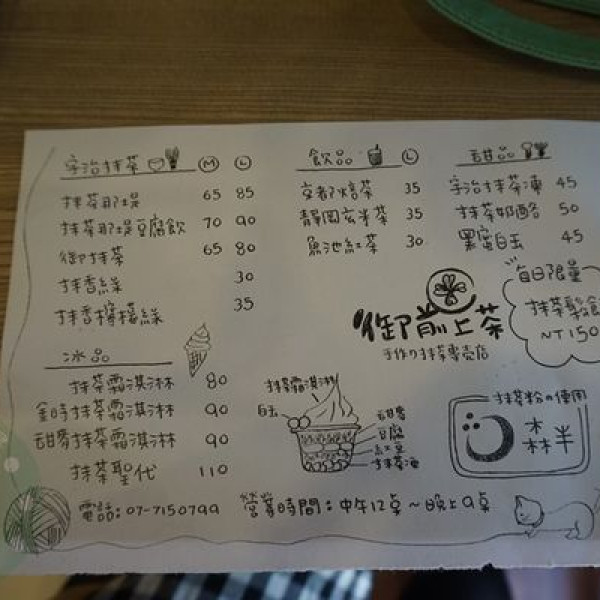 宇治抹茶 M L
抹茶那堤 65 85
抹茶那堤豆腐飲 70 90
御抹茶 65 80
抹香綠 30
抹香檸檬綠 35
飲品 L
京都焙茶 35
靜岡玄米茶 35
魚池紅茶 30
甜品
宇治抹茶凍 45
抹茶奶酪 50
黑蜜白玉 45
每日限量
抹茶鬆餅
NT150
御前上茶
手作り抹茶專売店
冰品
抹茶霜淇淋 80
金時抹茶霜淇淋 90
甜麥抹茶霜淇淋 90
抹茶聖代 110
抹茶霜淇淋
白玉
甜麥
豆腐
紅豆
抹茶凍
抹茶粉の使用
森半
電話：07-7150799 營業時間：中午12点～晚上9点